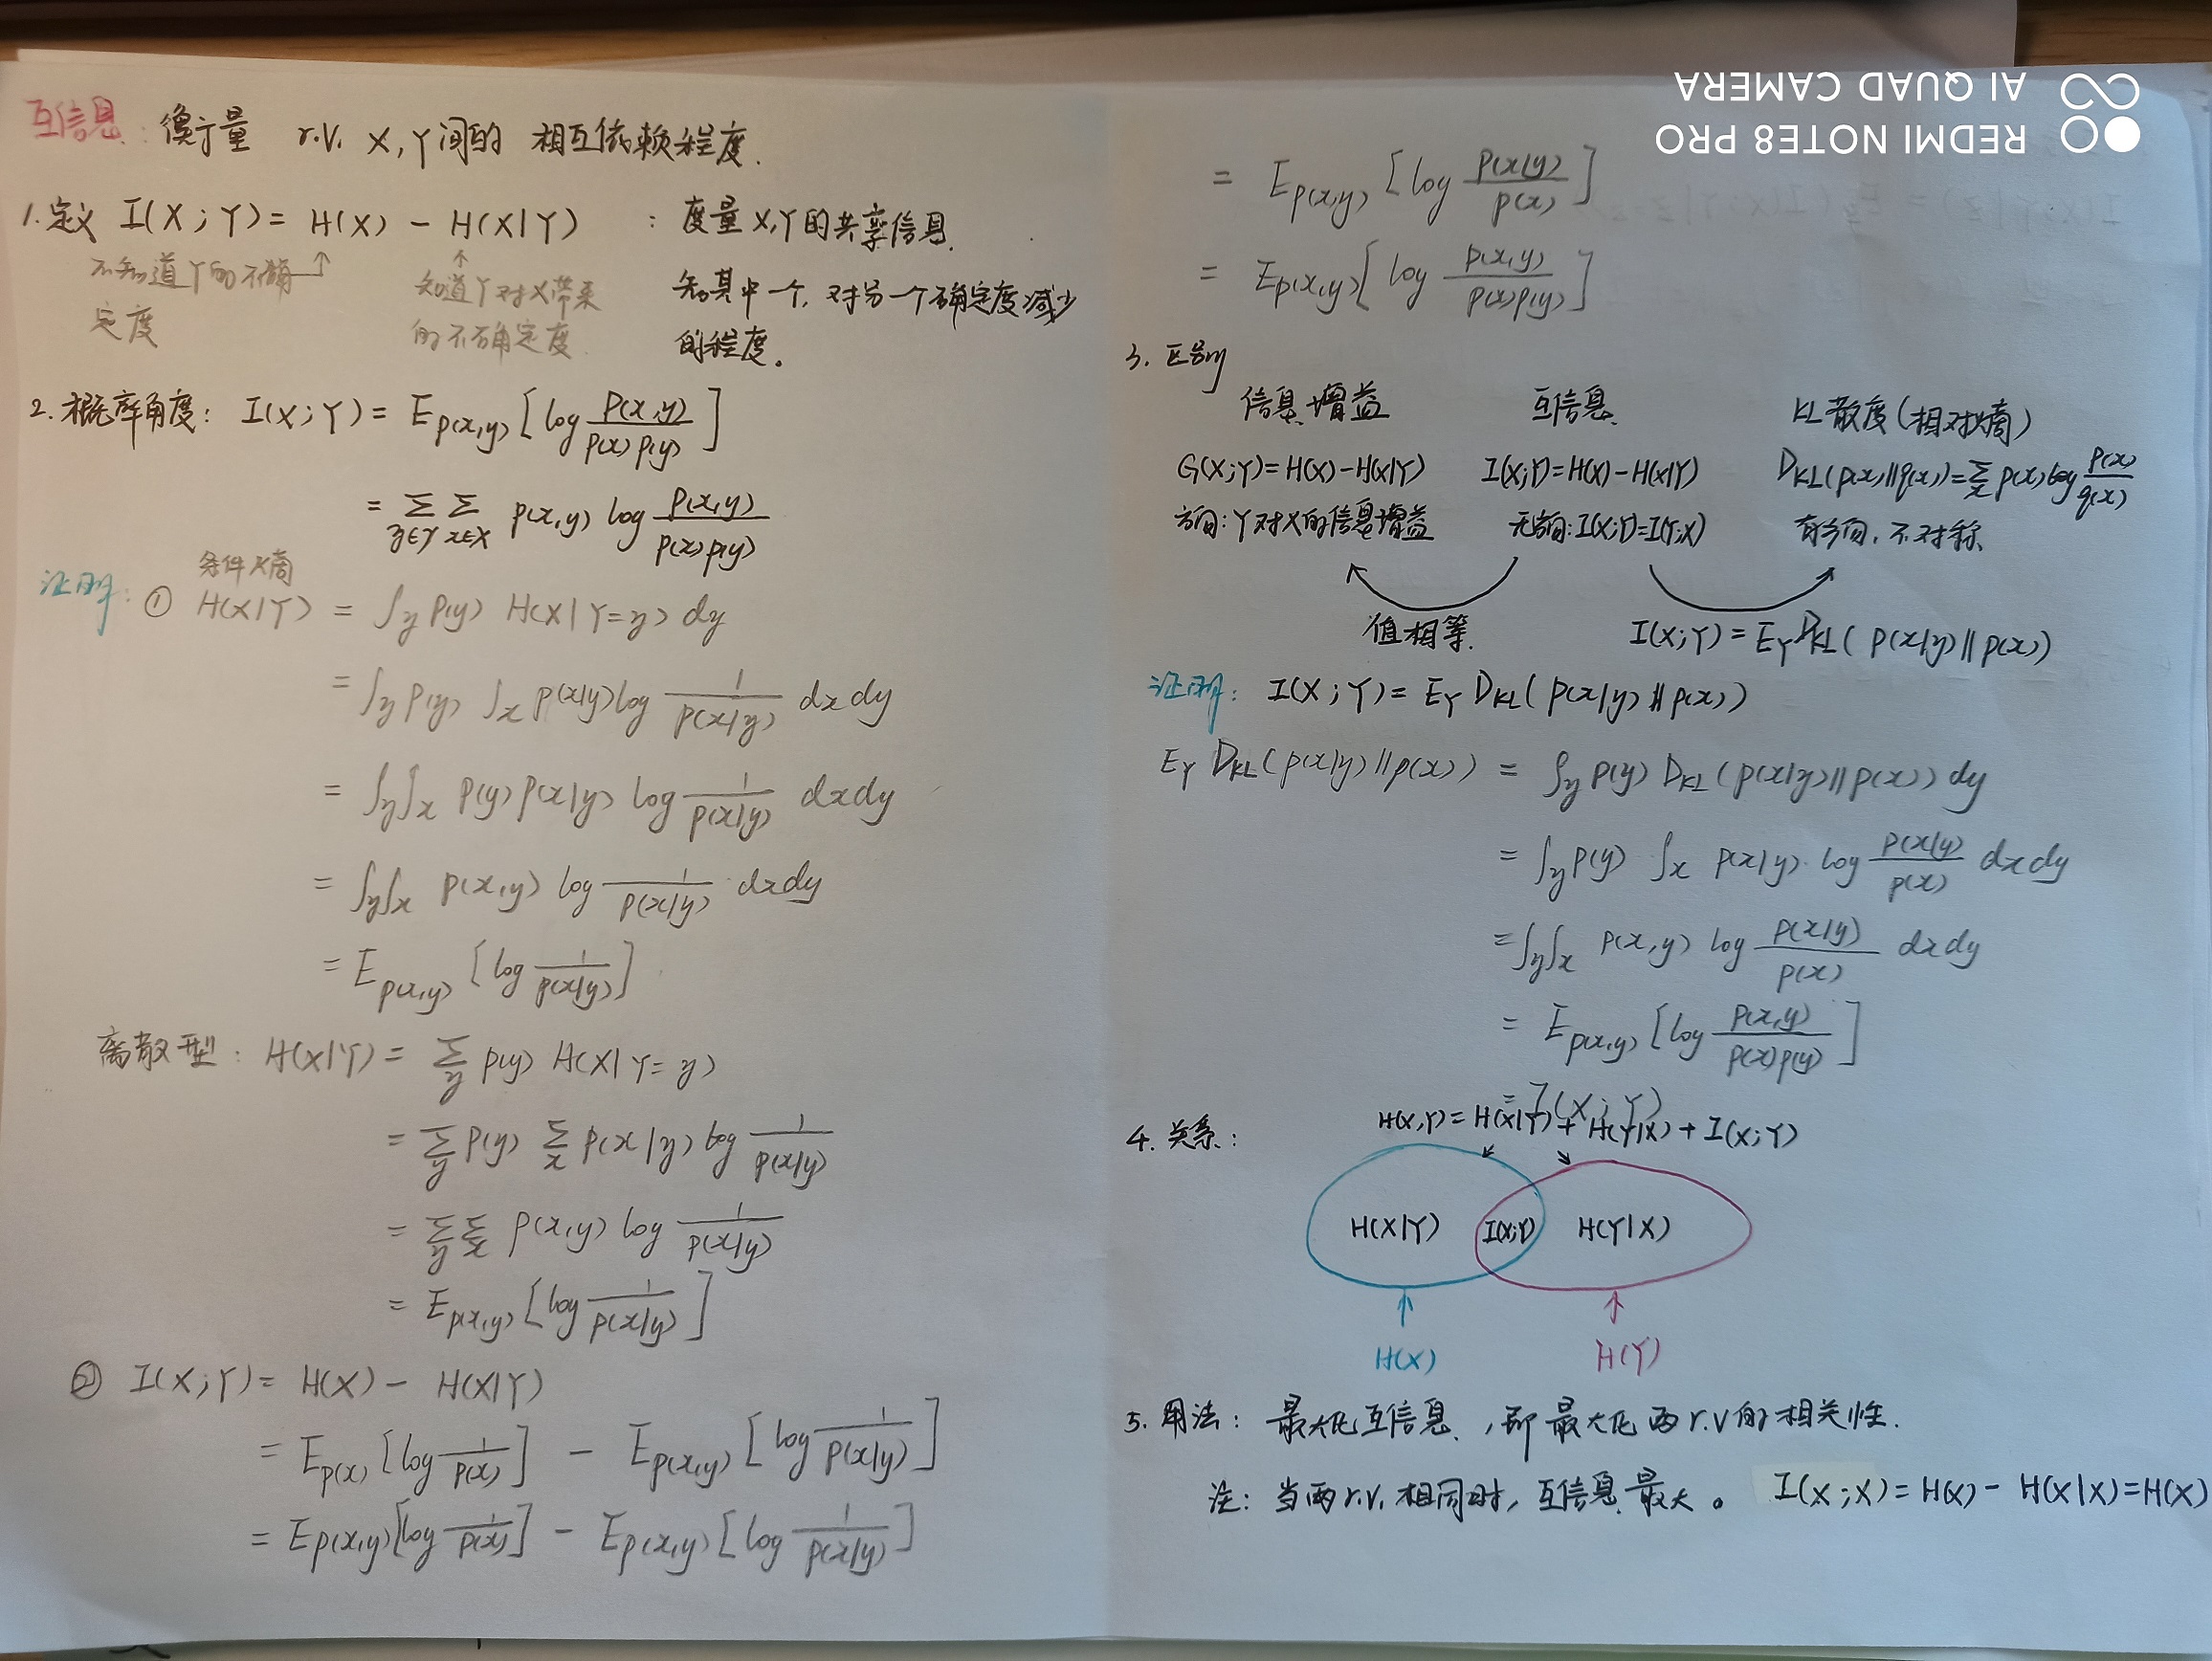 互信息：衡量 r.v. X, Y间的 相互依赖程度.
1.定义 I(X;Y) = H(X) - H(X|Y) : 度量X,Y的共享信息.
不知道Y的不确定度
知道Y对X带来的不确定度.
知其中一个, 对另一个不确定度减少
的程度。
2. 概率角度: I(X;Y) = E_{p(x,y)} [log \frac{p(x,y)}{p(x)p(y)}]
= \sum_{y∈Y} \sum_{x∈X} p(x,y) log \frac{p(x,y)}{p(x)p(y)}
条件熵
证明: ① H(X|Y) = ∫_y p(y) H(X|Y=y) dy
= ∫_y p(y) ∫_x p(x|y) log \frac{1}{p(x|y)} dx dy
= ∫_y∫_x p(y)p(x|y) log \frac{1}{p(x|y)} dxdy
= ∫_y∫_x p(x,y) log \frac{1}{p(x|y)} dxdy
= E_{p(x,y)} [log \frac{1}{p(x|y)}]
离散型: H(X|Y) = \sum_y p(y) H(X|Y=y)
= \sum_y p(y) \sum_x p(x|y) log \frac{1}{p(x|y)}
= \sum_y \sum_x p(x,y) log \frac{1}{p(x|y)}
= E_{p(x,y)} [log \frac{1}{p(x|y)}]
② I(X;Y) = H(X) - H(X|Y)
= E_{p(x)} [log \frac{1}{p(x)}] - E_{p(x,y)} [log \frac{1}{p(x|y)}]
= E_{p(x,y)} [log \frac{1}{p(x)}] - E_{p(x,y)} [log \frac{1}{p(x|y)}]
REDMI NOTE8 PRO
AI QUAD CAMERA
= E_{p(x,y)} [log \frac{p(x|y)}{p(x)}]
= E_{p(x,y)} [log \frac{p(x,y)}{p(x)p(y)}]
3. 区别
信息增益 互信息 KL散度(相对熵)
G(X;Y)=H(X)-H(X|Y) I(X;Y)=H(X)-H(X|Y) D_{KL}(p(x)||q(x))=\sum_x p(x) log \frac{p(x)}{q(x)}
方向: Y对X的信息增益 无方向: I(X;Y)=I(Y;X) 有方向, 不对称
值相等. I(X;Y) = E_Y D_{KL}( p(x|y) || p(x))
证明: I(X;Y) = E_Y D_{KL}( p(x|y) || p(x))
E_Y D_{KL}(p(x|y)||p(x)) = ∫_y p(y) D_{KL}(p(x|y)||p(x)) dy
= ∫_y p(y) ∫_x p(x|y) · log \frac{p(x|y)}{p(x)} dxdy
= ∫_y∫_x p(x,y) log \frac{p(x|y)}{p(x)} dxdy
= E_{p(x,y)} [log \frac{p(x,y)}{p(x)p(y)}]
= I(X;Y)
4. 关系: H(X,Y) = H(X|Y) + H(Y|X) + I(X;Y)
H(X|Y) I(X;Y) H(Y|X)
H(X) H(Y)
5. 用法: 最大化互信息, 即最大化两r.v的相关性.
注: 当两r.v.相同时, 互信息最大。 I(X;X) = H(X) - H(X|X) = H(X)